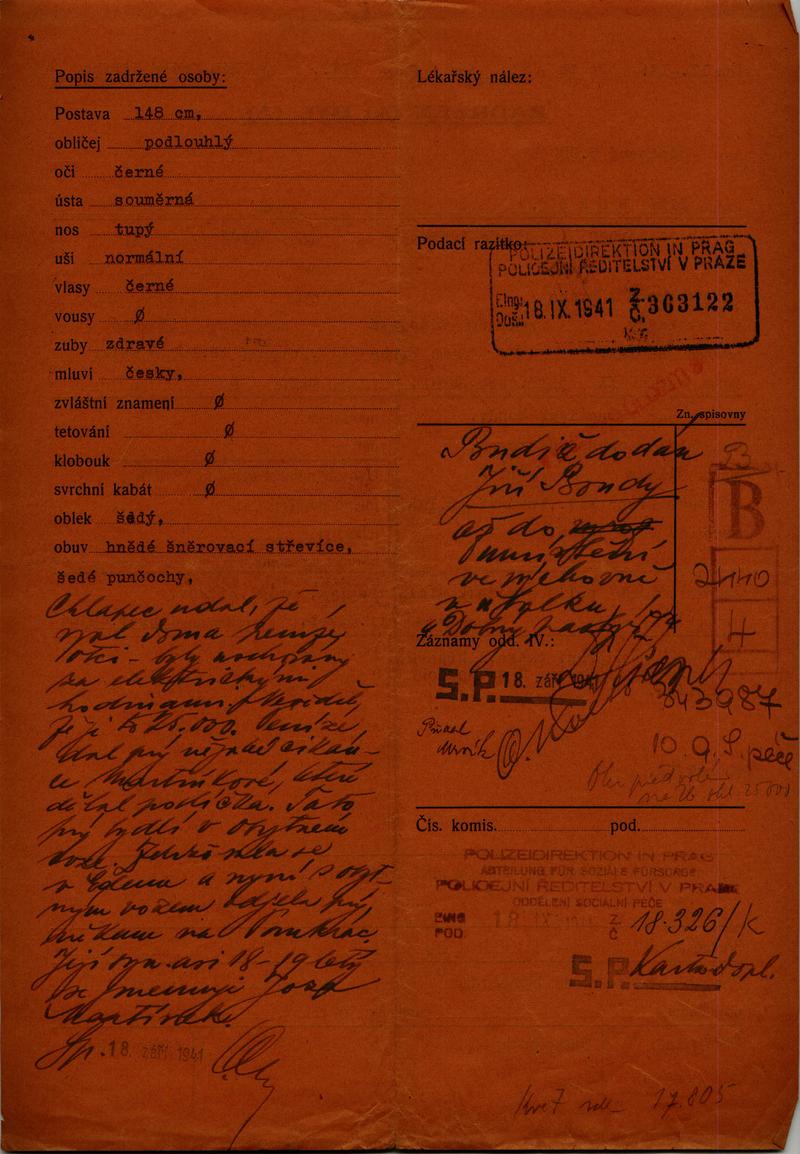 Popis zadržené osoby:
Postava 148 cm,
obličej podlouhlý
oči černé
ústa souměrná
nos tupý
uši normální
vlasy černé
vousy Ø
zuby zdravé
mluví česky,
zvláštní znamení Ø
tetování Ø
klobouk Ø
svrchní kabát Ø
oblek šedý,
obuv hnědé šněrovací střevíce,
šedé punčochy,
Chlapec udal, že
vzal doma peníze
otci - byly uschovány
za elektrickými
hodinami. Nevěděl,
že je to 25.000. Peníze
dal prý nějaké cikán-
ce Martínkové, která
dělal podička. Tato
prý bydlí v obytném
voze. Zdržovala se
v Edenu a nyní s obyt-
ným vozem odjela prý
někam na Pankrác.
Její syn asi 18-19 letý
se jmenuje Josef
Martínek.
18. září 1941
Lékařský nález:
Podací razítko:
POLIZEIDIREKTION IN PRAG
POLICEJNÍ ŘEDITELSTVÍ V PRAZE
Eing:
Doš.: 18. IX. 1941 Z. Č. 363122
Zn. spisovny
Budiž dodán
Jiří Bondy
až do
umístění
ve výchovné
B
2440
4
Záznamy odd. IV.:
S.P. 18. září 1941
343987
10.9. S. péče
Čís. komis. pod.
POLIZEIDIREKTION IN PRAG
ABTEILUNG FÜR SOZIALE FÜRSORGE
POLICEJNÍ ŘEDITELSTVÍ V PRAZE
ODDĚLENÍ SOCIÁLNÍ PÉČE
EING
POD. 18 IX 1941 Z. Č 18.326/K
S.P. Karta dopl.
17.805